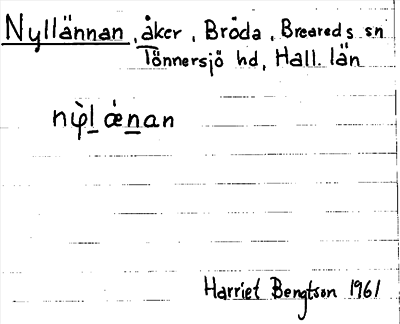 Nyllännan, åker, Bröda, Breareds sn
Tönnersjö hd, Hall. län
nỳl ǽnan
Harriet Bengtson 1961